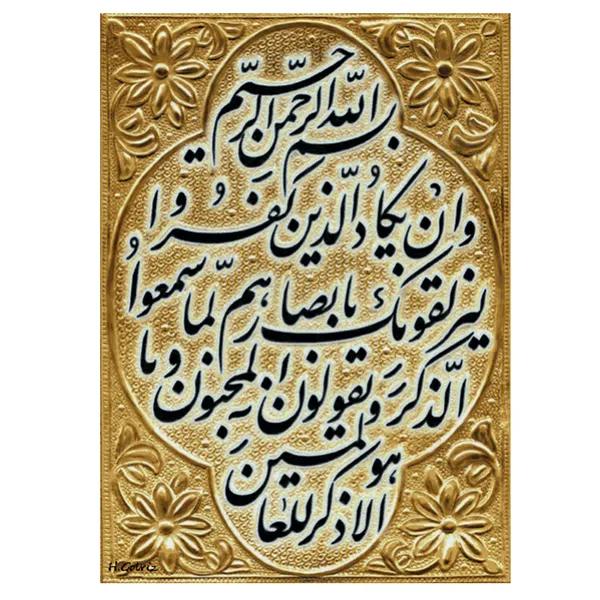 بسم الله الرحمن الرحیم
وان یکاد الذین کفروا
لیزلقونک بابصارهم لما سمعوا
الذکر ویقولون انه لمجنون وما
هو الا ذکر للعالمین
H.Golriz